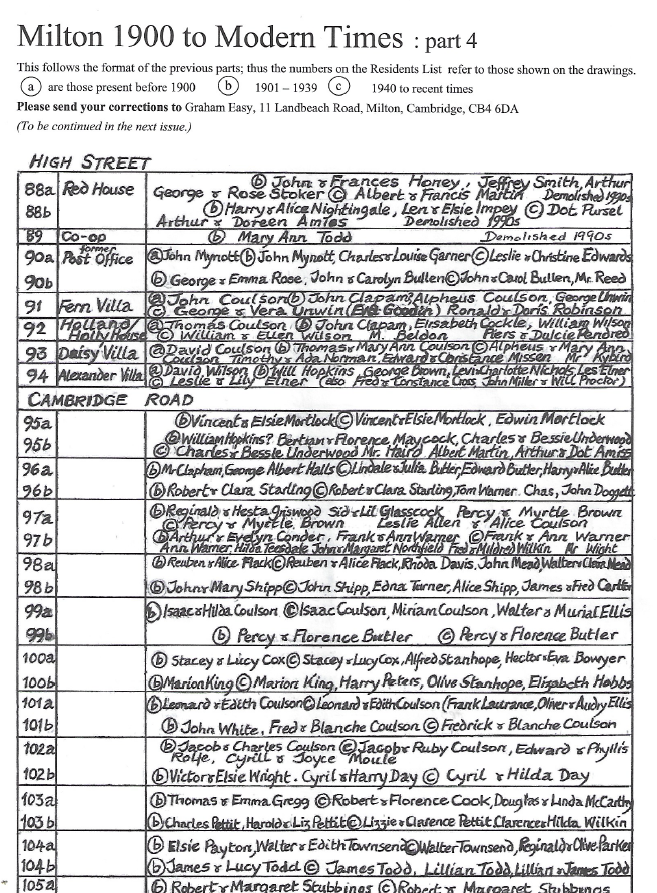 Milton 1900 to Modern Times : part 4
This follows the format of the previous parts; thus the numbers on the Residents List refer to those shown on the drawings.
a are those present before 1900 b 1901 – 1939 c 1940 to recent times
Please send your corrections to Graham Easy, 11 Landbeach Road, Milton, Cambridge, CB4 6DA
(To be continued in the next issue.)
HIGH STREET
88a Red House b John & Frances Honey, Jeffrey Smith, Arthur
George & Rose Stoker c Albert & Francis Martin Demolished 1990s
88b b Harry & Alice Nightingale, Len & Elsie Impey c Dot Pursel
Arthur & Doreen Amies Demolished 1990s
89 Co-op b Mary Ann Todd Demolished 1990s
90a former Post Office a John Mynott b John Mynott, Charles & Louise Garner c Leslie & Christine Edwards
90b b George & Emma Rose, John & Carolyn Bullen c John & Carol Bullen, Mr. Reed
91 Fern Villa a John Coulson b John Clapam? Alpheus Coulson, George Unwin
c George & Vera Unwin ( ) Ronald & Doris Robinson
92 Holland/ Holly House a Thomas Coulson b John Clapam, Elisabeth Cockle, William Wilson
c William & Ellen Wilson M. Beldon Piers & Dulcie Pendred
93 Daisy Villa a David Coulson b Thomas & Mary Ann Coulson c Alpheus & Mary Ann
Coulson Timothy & Ada Norman, Edward & Constance Missen Mr
94 Alexander Villa a David Wilson b Will Hopkins, George Brown, Levi & Charlotte Nichols, Les Elner
c Leslie & Lily Elner (also Fred & Constance Cross, John Miller & Will Proctor)
CAMBRIDGE ROAD
95a b Vincent & Elsie Mortlock c Vincent & Elsie Mortlock, Edwin Mortlock
95b a William Hopkins? Bertram & Florence Maycock, Charles & Bessie Underwood
c Charles & Bessie Underwood Mr. Haird Albert Martin, Arthur & Dot Amiss
96a b Mr Clapham, George Albert Halls c Lindale & Julia Butler, Edward Butler, Harry & Alice Butler
96b b Robert & Clara Starling c Robert & Clara Starling, Tom Warner. Chas, John Doggett
97a b Reginald & Hesta Griswood Sid & Lil Glasscock Percy & Myrtle Brown
c Percy & Myrtle Brown Leslie Allen & Alice Coulson
97b b Arthur & Evelyn Conder, Frank & Ann Warner c Frank & Ann Warner
Ann Warner, Hilda Teesdale John & Margaret Northfield Fred & Mildred Wilkin Mr Wight
98a b Reuben & Alice Flack c Reuben & Alice Flack, Rhoda Davis, John Mead, Walter & Clara Mead
98b b John & Mary Shipp c John Shipp, Edna Turner, Alice Shipp, James & Fred Carter
99a b Isaac & Hilda Coulson c Isaac Coulson, Miriam Coulson, Walter & Murial Ellis
99b b Percy & Florence Butler c Percy & Florence Butler
100a b Stacey & Lucy Cox c Stacey & Lucy Cox, Alfred Stanhope, Hector & Eva Bowyer
100b b Marion King c Marion King, Harry Peters, Olive Stanhope, Elizabeth Hobbs
101a b Leonard & Edith Coulson c Leonard & Edith Coulson (Frank Laurance, Oliver & Audry Ellis
101b b John White, Fred & Blanche Coulson c Fredrick & Blanche Coulson
102a b Jacob & Charles Coulson c Jacob & Ruby Coulson, Edward & Phyllis
Rolfe, Cyrill & Joyce Moule
102b b Victor & Elsie Wright. Cyril & Harry Day c Cyril & Hilda Day
103a b Thomas & Emma Gregg c Robert & Florence Cook, Douglas & Linda McCarthy
103b b Charles Pettit, Harold & Liz Pettit c Lizzie & Clarence Pettit, Clarence & Hilda Wilkin
104a b Elsie Payton, Walter & Edith Townsend c Walter Townsend, Reginald & Olive Parker
104b b James & Lucy Todd c James Todd, Lillian Todd, Lillian & James Todd
105a b Robert & Margaret Stubbings c Robert & Margaret Stubbings